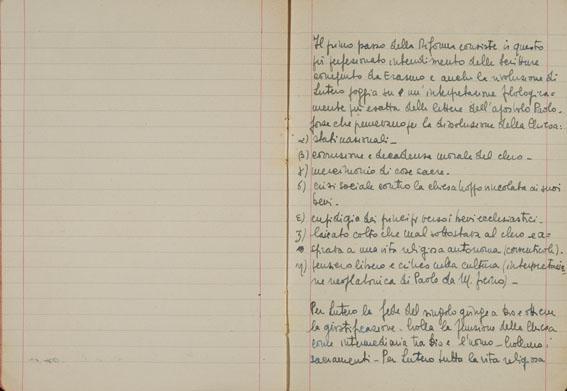 Il primo passo della Riforma consiste in questo
più perfezionato intendimento delle Scritture
compiuto da Erasmo e anche la rivoluzione di
Lutero poggia su un'interpretazione filologica-
mente più esatta delle lettere dell'apostolo Paolo.
forze che premevano per la dissoluzione della Chiesa:
α) stati nazionali -
β) corruzione e decadenza morale del clero -
γ) mercimonio di cose sacre.
δ) crisi sociale contro la chiesa troppo vincolata ai suoi
beni.
ε) cupidigia dei principi verso i beni ecclesiastici.
ζ) laicato colto che mal sottostava al clero e a-
spirava a una vita religiosa autonoma (conventicoli).
η) pensiero libero e critico nella cultura (interpretazio-
ne neoplatonica di Paolo da M. ficino) -
Per Lutero la fede del singolo giunge a Dio e ottiene
la giustificazione. Crolla la funzione della Chiesa
come intermediaria tra Dio e l'uomo - crollano i
sacramenti - Per Lutero tutta la vita religiosa